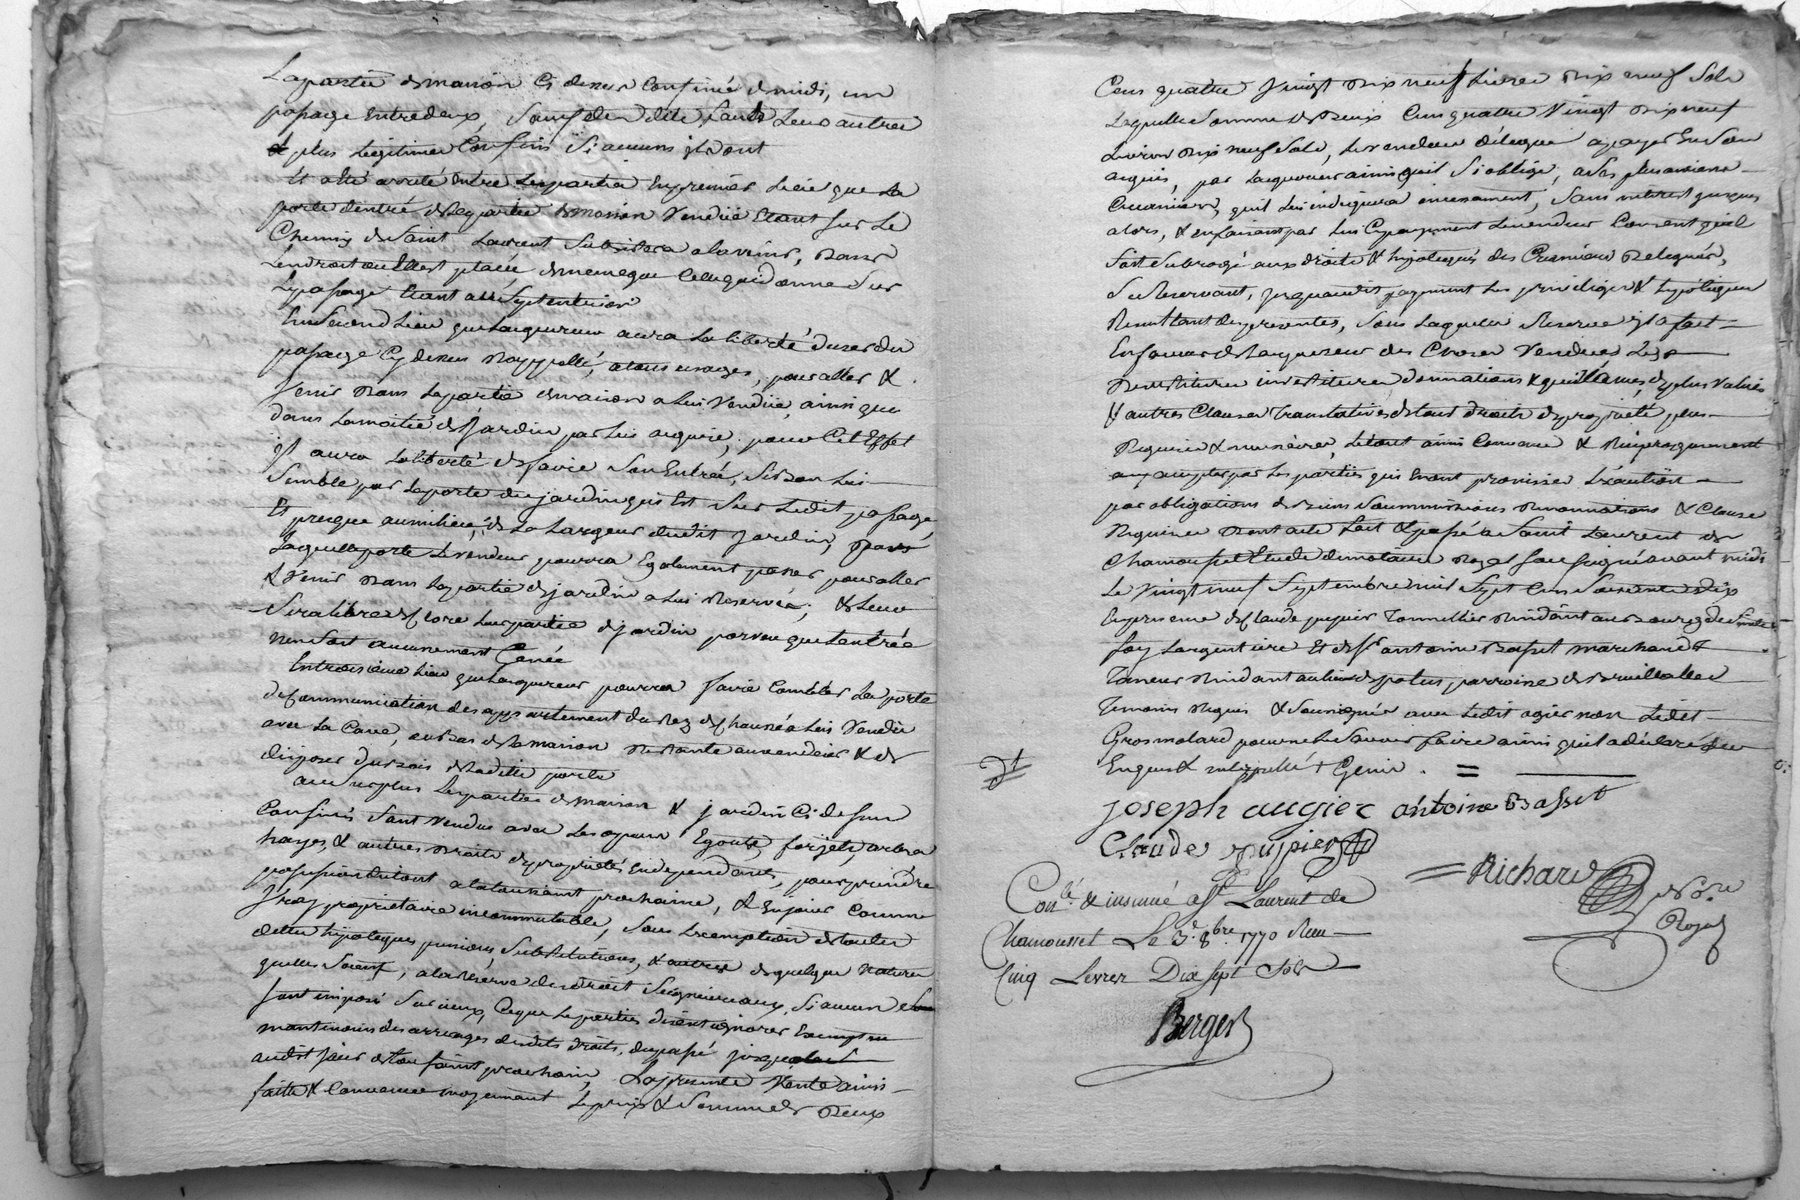 La partie de maison Ci dessus Confinée de midi, un
passage Entredeux, Sauf desdites parts Leurs autres
& plus Legitimes Confins Si aucuns y Sont
Et a été arreté Entre Les parties En premier Lieu que La
porte d'entrée de la partie de maison Vendue Etant Sur Le
Chemin de Saint Laurent Subsistera a l'avenir, dans
L'endroit ou Elle est placée, de meme que Celle qui donne Sur
Le passage Etant au Septentrion
En Second Lieu que L'acquereur aura La liberté d'user du
passage Cy dessus Rappellé, a tous usages, pour aller &
Venir dans La partie de maison a Lui Vendue, ainsi que
dans La moitié de Jardin par Lui acquise, pour Cet Effet
il aura La liberté de faire Son Entrée, Si bon Lui
Semble par La porte du jardin qui Est Sur Ledit passage
Et presque au milieu de La Largeur dudit Jardin, par
Laquelle porte Le vendeur pourra Egalement passer pour aller
& Venir dans La partie de jardin a Lui Reservée;
Sera libre de Clore Leurs parties de jardin pourvu que L'entrée
n'en Soit aucunement Genée
En troisieme Lieu que L'acquereur pourra faire Combler La porte
de Communication des appartement du Rez de Chaussée a Lui Vendu
avec La Cave, au bas de la maison Restante au vendeur & de
disposer du bois de Ladite porte
au Surplus Les parties de maison & jardin Ci dessus
Confinés Sont Vendus avec Les Egouts, forjets, arbres
hayes, & autres droits de proprietés En dependants, pour prendre
possession du tout a la toussaint prochaine, & En jouir Comme
Vray proprietaire incommutable, Sous L'exemption de toutes
dettes hipoteques pensions, Substitutions, & autres de quelque Nature
quelles Soient, a la reserve des droits Seigneuriaux, Si aucun
Sont imposé Sur iceux, Ce que Les parties disent ignorer Exempts
maintenus des arrerages desdits droits, du passé jusqu'
audit jour de toussaint prochain, La presente Vente ainsi
faite & Convenue moyennant Le prix & Somme de Deux
Cens quatre Vingt dix neuf Livres dix neuf Sols
Laquelle Somme de Deux Cens quatre Vingt dix neuf
Livres dix neuf Sols, Le vendeur delegue a payer En Son
acquis, par L'acquereur ainsi qu'il S'i oblige, a Ses plus anciens
Creanciers, qu'il Lui indiquera incessament, Sans interest jusques
alors, & en faisant par Lui Ce payement Le vendeur Consent qu'il
Soit Subrogé aux droits & hipoteques des Creanciers Delegués,
Se Reservant, jusqu'audit payement Les privileges & hypoteques
Resultant des presentes, Sous Laquelle Reserve il a fait
En faveur de L'acquereur des Choses Vendues Les
Devestitures investitures donnations & quittances, de plus Values
& autres Clauses Translatives de tous droits de proprieté plus
Requises & necessaires, Letout ainsi Convenu & Reciproquement
accepté par Les parties qui L'ont promis L'execution
par obligations de biens Soummissions Renonciations & Clauses
Requises dont acte Fait & passé a Saint Laurent de
Chamousset Etude du notaire Royal Soussigné avant midi
Le Vingt neuf Septembre mil Sept Cens Soixante dix
En presence de Claude pupier Tonnellier Residant au bourg de Sainte
foy L'argentiere Et de Sr. antoine Basset marchand
Tanneur Residant au lieu de potus, parroisse de Brullialles
Temoins Requis & Soussignés avec Ledit ogier non Ledit
Grosmolard pour ne Le Savoir faire ainsi qu'il a déclaré de ce
Enquis & interpellé + Genin . =
Joseph augier antoine Basset
Claude pupier
= Richard
Nore
Royal
Conlé & insinué a St Laurent de
Chamousset Le 3e. 8bre. 1770 Reçu
Cinq Livres Dix Sept Sols
Berger